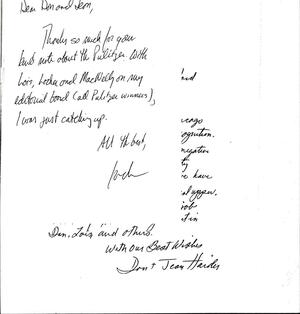 Dear Don and Jean,
Thanks so much for your
kind note about the Pulitzer. With
Lois, and MacNelly on my
editorial board (all Pulitzer winners),
I was just catching up.
All the best,
Jack
and
negative
ty
have
in
Don, Lois and others.
With our Best Wishes
Don + Jean